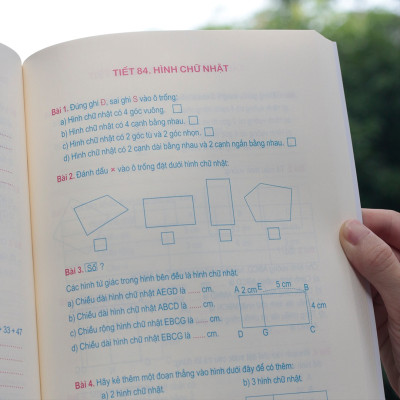 TIẾT 84. HÌNH CHỮ NHẬT
Bài 1. Đúng ghi Đ, sai ghi S vào ô trống:
a) Hình chữ nhật có 4 góc vuông.
b) Hình chữ nhật có 4 cạnh bằng nhau.
c) Hình chữ nhật có 2 góc tù và 2 góc nhọn.
d) Hình chữ nhật có 2 cạnh dài bằng nhau và 2 cạnh ngắn bằng nhau.
Bài 2. Đánh dấu × vào ô trống đặt dưới hình chữ nhật:
Bài 3. Số ?
Các hình tứ giác trong hình bên đều là hình chữ nhật.
a) Chiều dài hình chữ nhật AEGD là ...... cm.
b) Chiều dài hình chữ nhật ABCD là ...... cm.
c) Chiều rộng hình chữ nhật EBCG là ...... cm.
d) Chiều dài hình chữ nhật EBCG là ...... cm.
A 2 cm E 5 cm B
4 cm
D G C
Bài 4. Hãy kẻ thêm một đoạn thẳng vào hình dưới đây để có thêm:
a) 2 hình chữ nhật. b) 3 hình chữ nhật.
+ 33 + 47